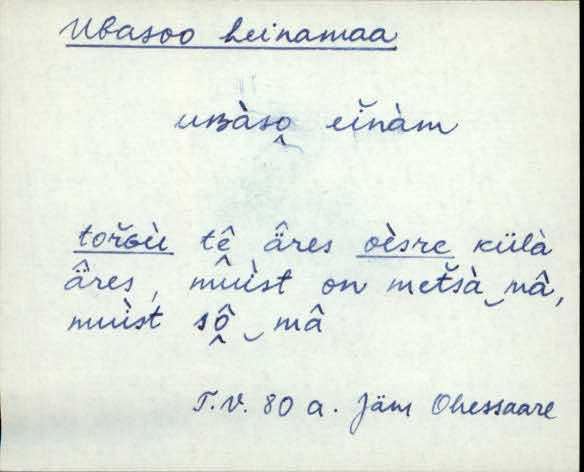 Ubasoo heinamaa
uʙàso̭ eiňàm
tořʙù tê ä̂res oèsre külà
ä̂res, mûìst on metšà‿mâ,
muìst sô̭‿mâ
T.V. 80 a. Jäm Ohessaare